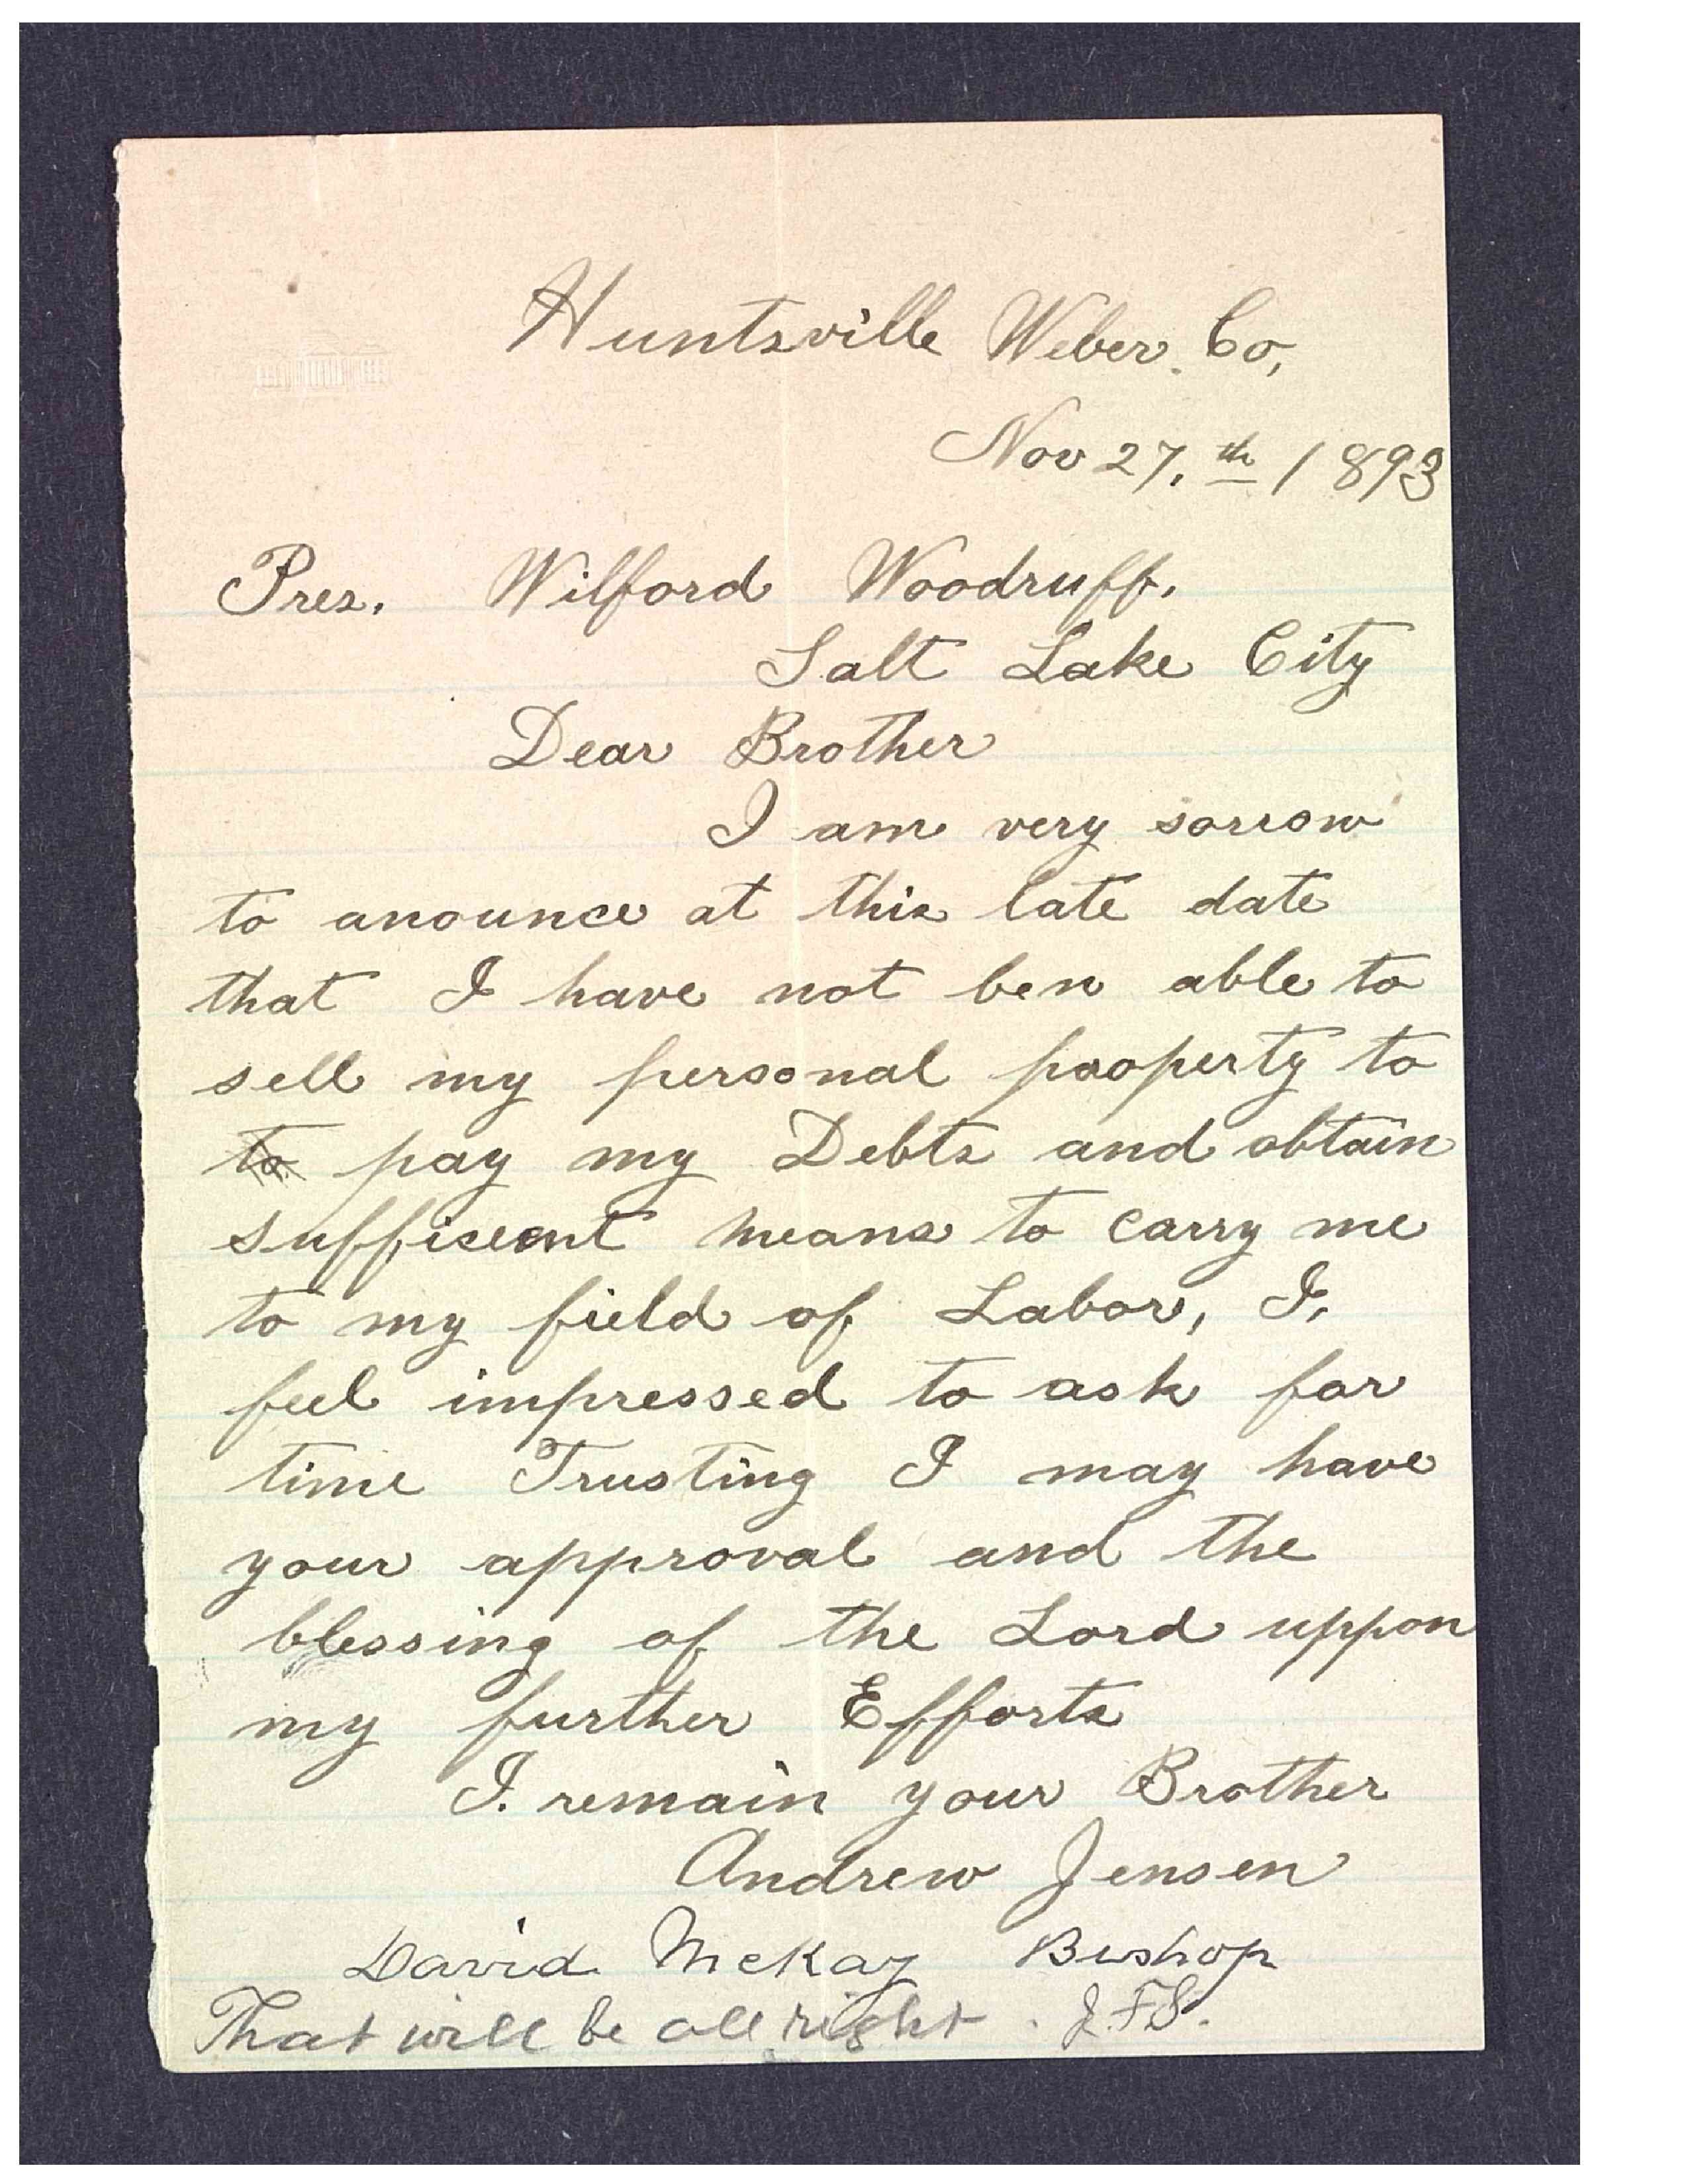 Huntsville Weber. Co,
Nov 27.th 1893
Pres. Wilford Woodruff.
Salt Lake City
Dear Brother
I am very sorrow
to anounce at this late date
that I have not ben able to
sell my personal paoperty to
to pay my Debts and obtain
sufficent means to carry me
to my field of Labor, I,
feel impressed to ask for
time Trusting I may have
your approval and the
blessing of the Lord uppon
my further Efforts
I. remain your Brother
Andrew Jensen
David McKay Bishop
That will be all right. J.F.S.